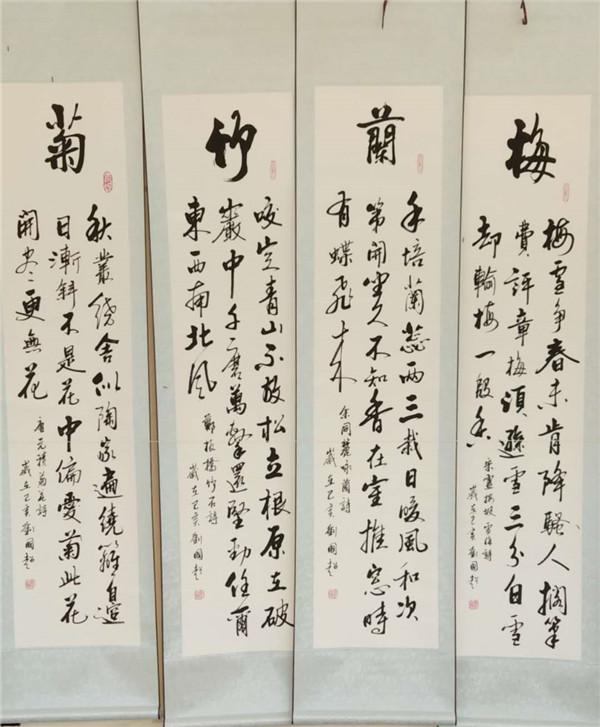 梅
梅雪争春未肯降騷人擱筆
費評章梅須遜雪三分白雪
却輸梅一段香
宋盧梅坡雪梅詩
歲在己亥劉國超
蘭
手培蘭蕊兩三栽日暖風和次
第開坐久不知香在室推窓時
有蝶飛来
余同麓咏蘭詩
歲在己亥劉國超
竹
咬定青山不放松立根原在破
巖中千磨萬擊還堅勁任爾
東西南北風
鄭板橋竹石詩
歲在己亥劉國超
菊
秋叢繞舍似陶家遍繞籬邊
日漸斜不是花中偏愛菊此花
開盡更無花
唐元稹菊花詩
歲在己亥劉國超